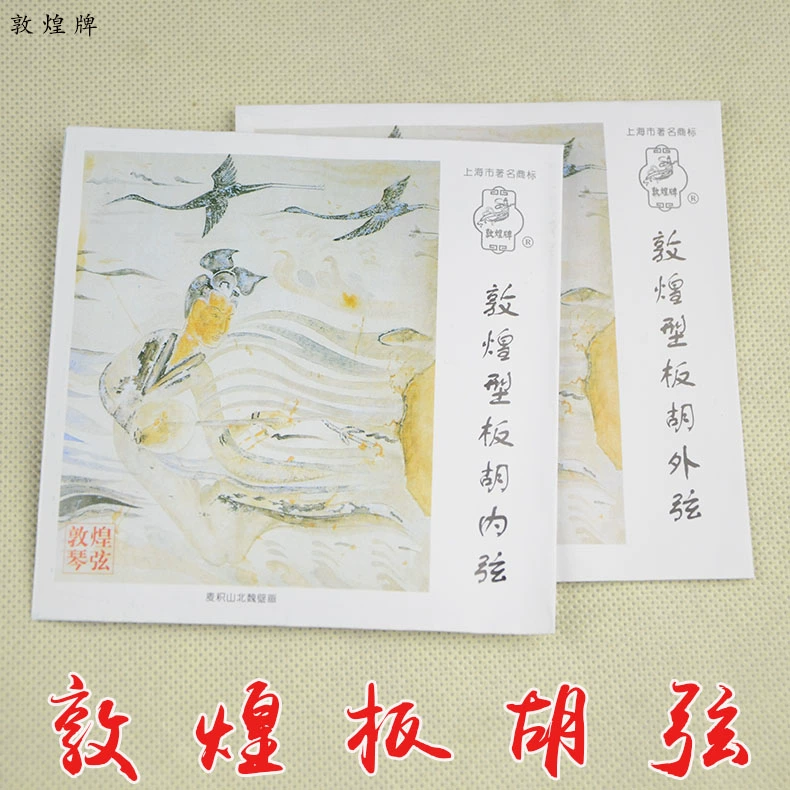 敦煌牌
上海市著名商标
敦煌牌
®
敦煌型板胡内弦
敦煌
琴弦
麦积山北魏壁画
上海市著名商标
敦煌牌
®
敦煌型板胡外弦
敦煌板胡弦